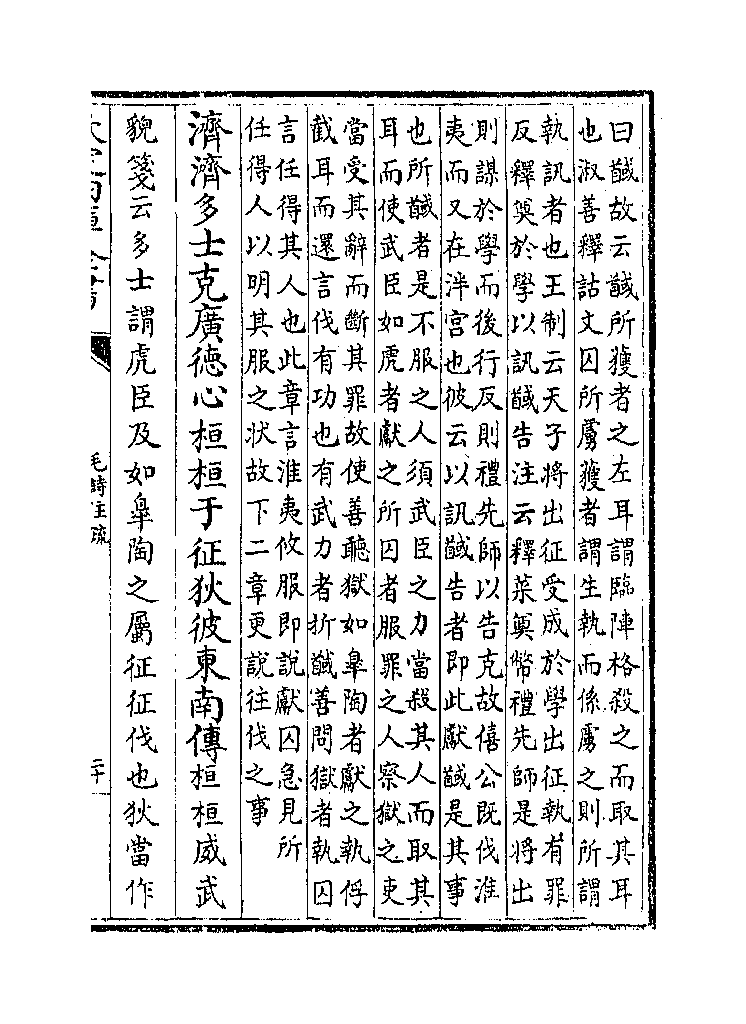 曰馘故云馘所獲者之左耳謂臨陣格殺之而取其耳
也淑善釋詁文囚所虜獲者謂生執而係虜之則所謂
執訊者也王制云天子將出征受成於學出征執有罪
反釋奠於學以訊馘告注云釋菜奠幣禮先師是將出
則謀於學而後行反則禮先師以告克故僖公既伐淮
夷而又在泮宫也彼云以訊馘告者即此獻馘是其事
也所馘者是不服之人須武臣之力當殺其人而取其
耳而使武臣如虎者獻之所囚者服罪之人察獄之吏
當受其辭而斷其罪故使善聽獄如臯陶者獻之執俘
截耳而還言伐有功也有武力者折馘善問獄者執囚
言任得其人也此章言淮夷攸服即說獻囚急見所
任得人以明其服之状故下二章更說往伐之事
濟濟多士克廣德心桓桓于征狄彼東南傳桓桓威武
貌箋云多士謂虎臣及如臯陶之屬征征伐也狄當作
毛詩注疏
二十